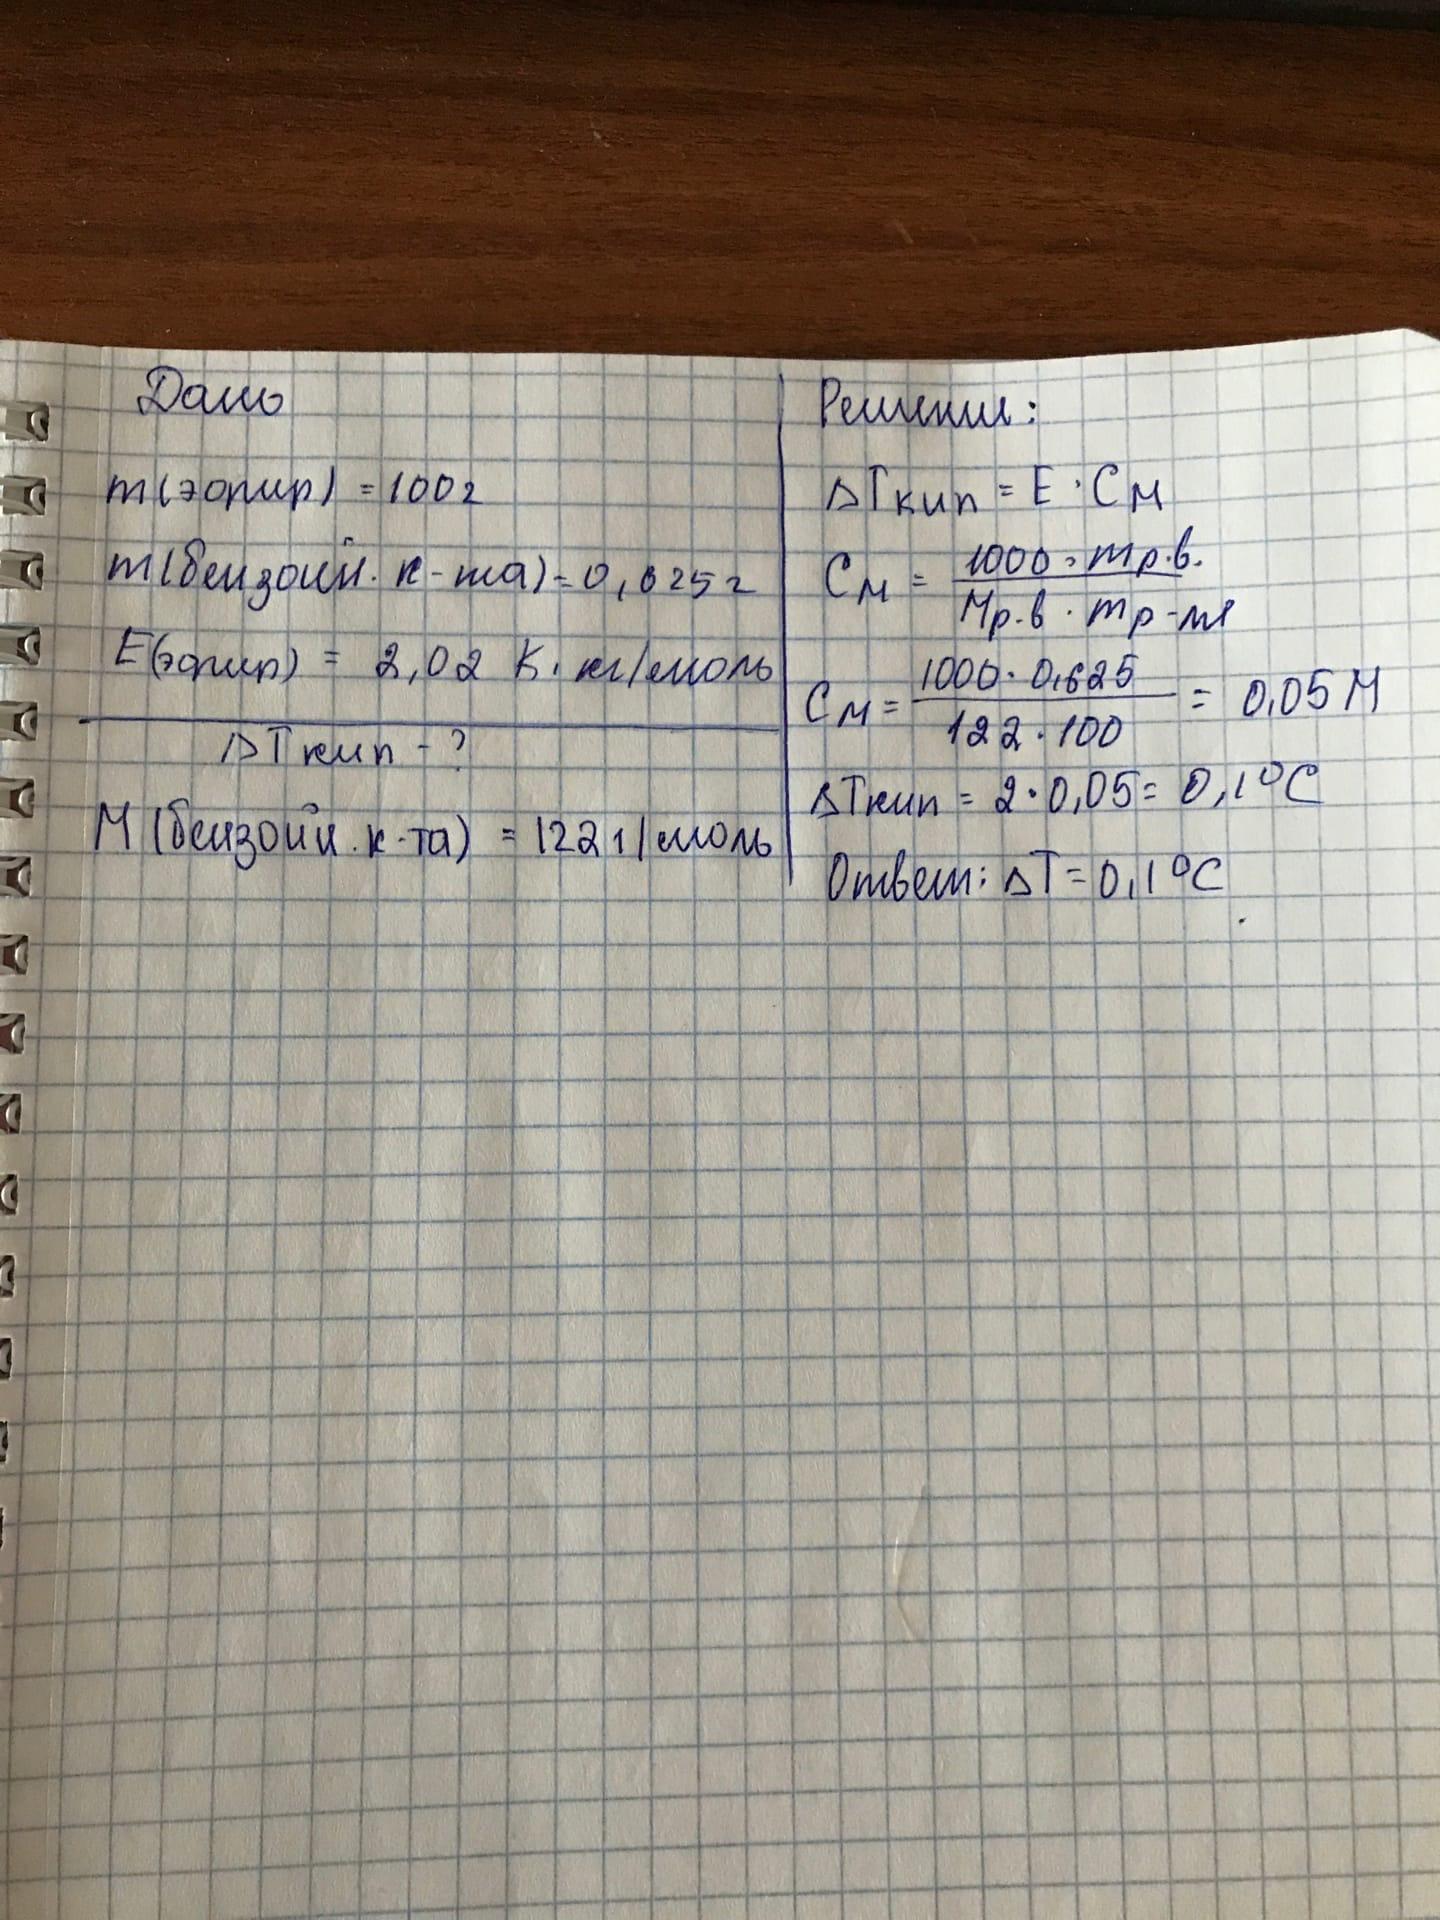 Дано
m(эфир) = 100г
m(бензойн. к-та) = 0,625г
E(эфир) = 2,02 К·кг/моль
ΔTкип - ?
M(бензойн. к-та) = 122 г/моль
Решение:
ΔTкип = E · Cм
Cм = 1000 · mр.в. / Mр.в · mр-ля
Cм = 1000 · 0,625 / 122 · 100 = 0,05 М
ΔTкип = 2 · 0,05 = 0,1°C
Ответ: ΔT = 0,1°C